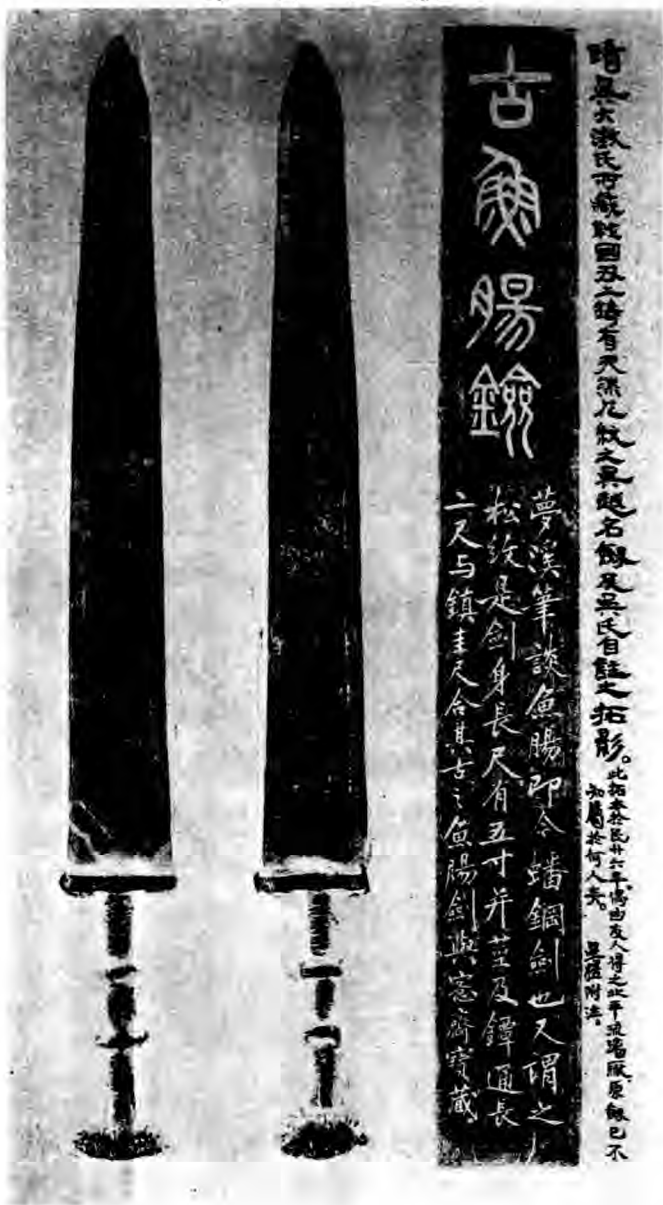 吳大澂氏所藏戰國之鑄有天然几紋之吳越名劍及吳氏自註之拓影。
此拓本於民廿六年，偶由友人得之北平琉璃厰。原劍已不
知屬於何人矣。 附注。
古魚腸鐱
夢溪筆談魚腸即今蟠鋼劍也又謂之
松紋是劍身長尺有五寸并莖及鐔通長
二尺与鎮圭尺合其古之魚腸劍與愙齋寶藏